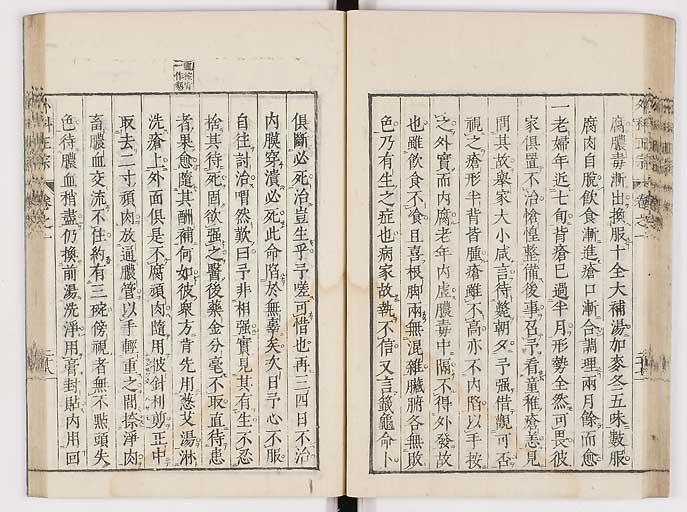 腐膿毒漸出換服十全大補湯如麥冬五味數服
腐肉自脫飲食漸進瘡口漸合調理兩月餘而愈
一老婦年近七旬背瘡已過半月形勢全然可畏彼
家俱置不治愴惶整備後事召予看童稚瘡恙見
問其故舉家大小咸言待斃朝夕予强借觀可否
視之瘡形半背皆腫瘡雖不高亦不內陷以手按
之外實而內腐老年內虛膿毒中隔不得外發故
也雖飲食不食且喜根脚兩無混雜臟腑各無敗
色乃有生之症也病家故執不信又言籤龜命卜
俱斷必死治豈生乎予嗟可惜也再三四日不治
內膜穿潰必死此命陷於無辜矣次日予心不服
自往討治喟然歎曰予非相强實見其有生不忍
捨其待死固欲强之醫後藥金分毫不取直待患
者果愈隨其酬補何如彼衆方肯先用葱艾湯淋
洗瘡上外面俱是不腐頑肉隨用鈹斜利剪正中
取去二寸頑肉放通膿管以手輕重之間捺淨肉
畜膿血交流不住約有三碗傍視者無不點頭失
色待膿血稍盡仍換前湯洗淨用膏封貼內用回
外科正宗
卷之一